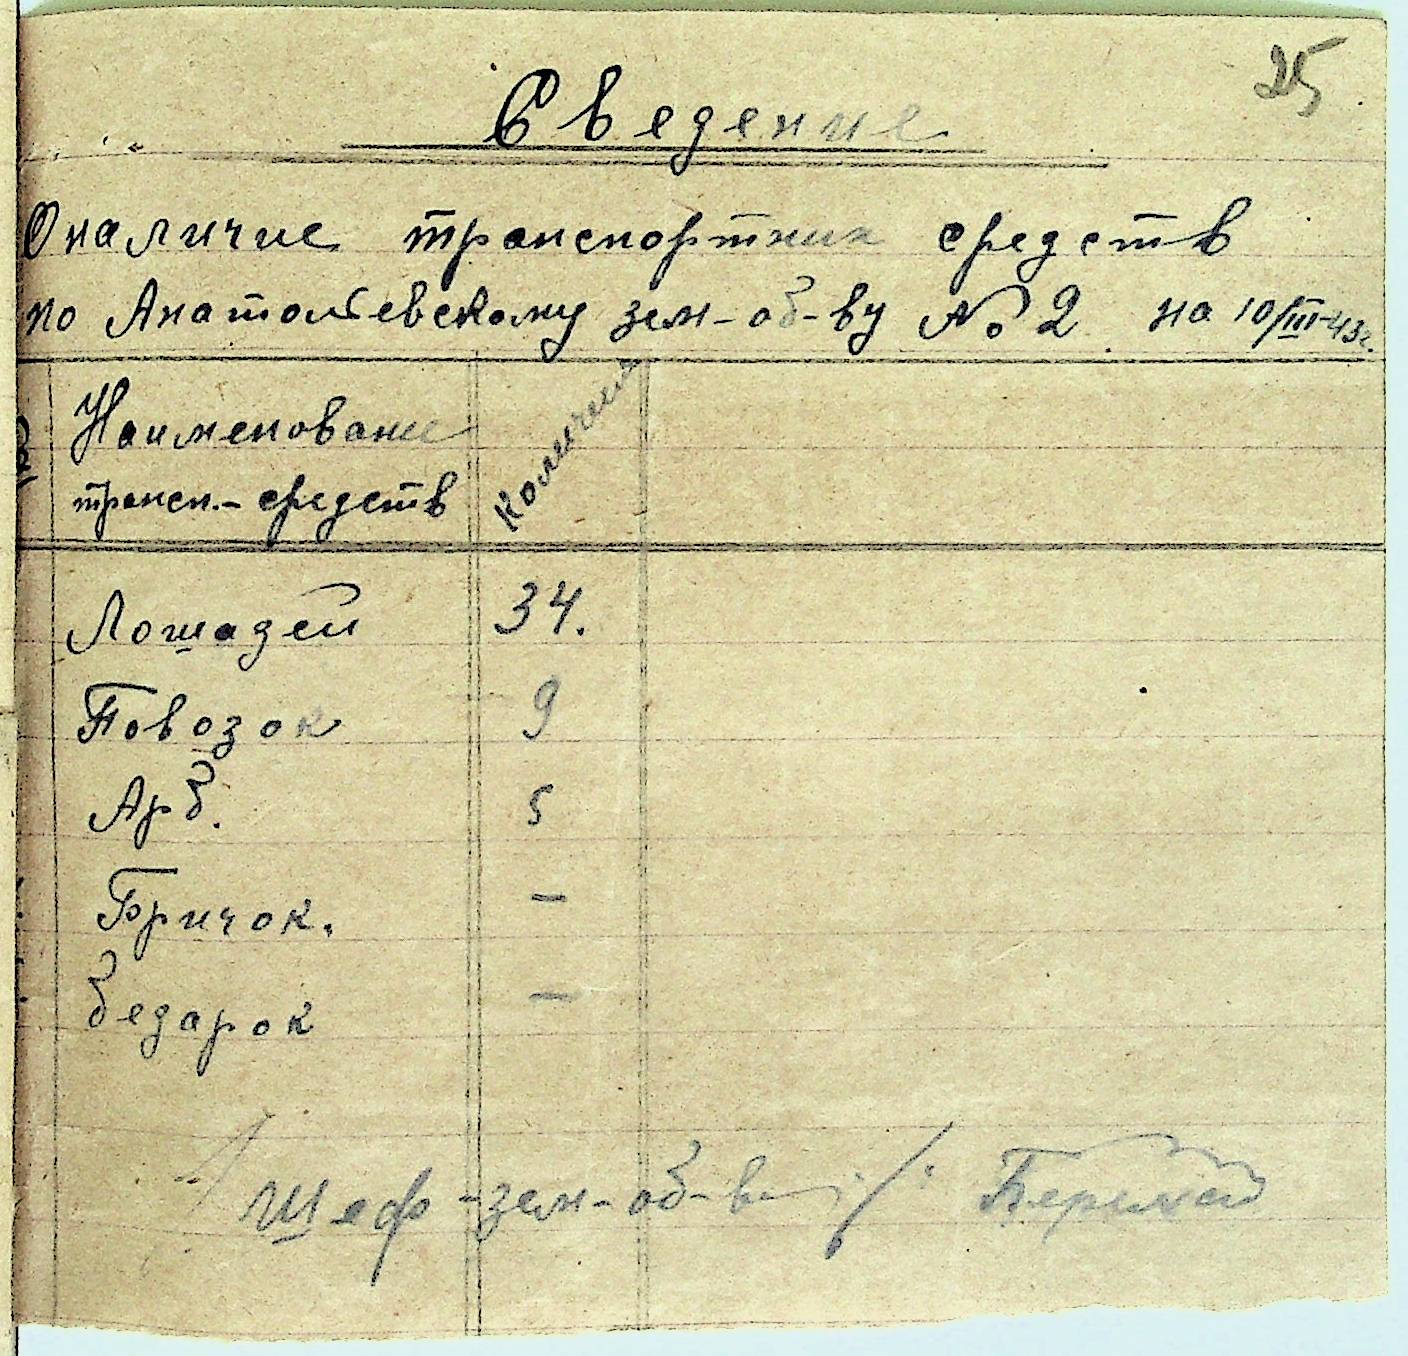 25
Сведение
О наличие транспортних средств
по Анатольевскому зем-об-ву № 2 на 10/III-43г.
Наименование
трансп.- средств
Количест
Лошадей 34.
Повозок 9
Арб. 5
Бричок. —
Бедарок —
Шеф -зем-об-ва